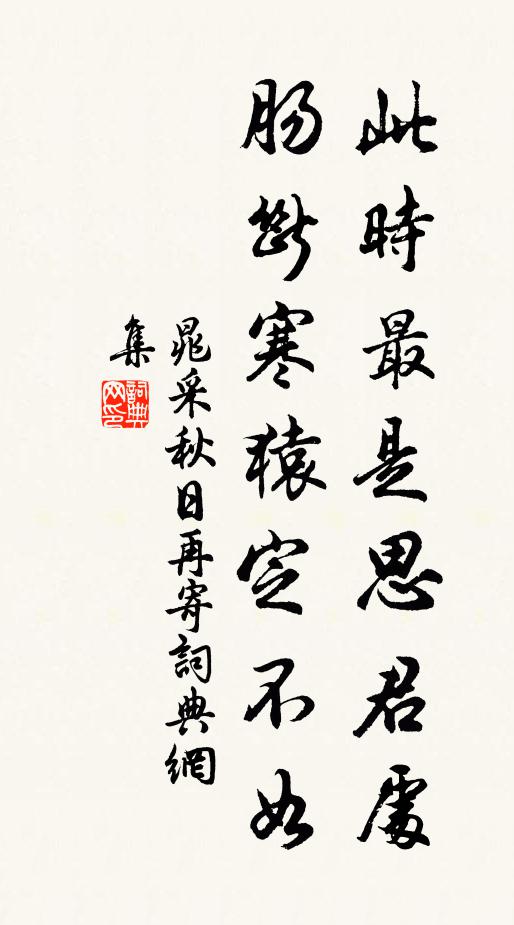 此時最是思君處
腸斷寒猿定不如
晁采秋日再寄詞典網
集
詞典網印